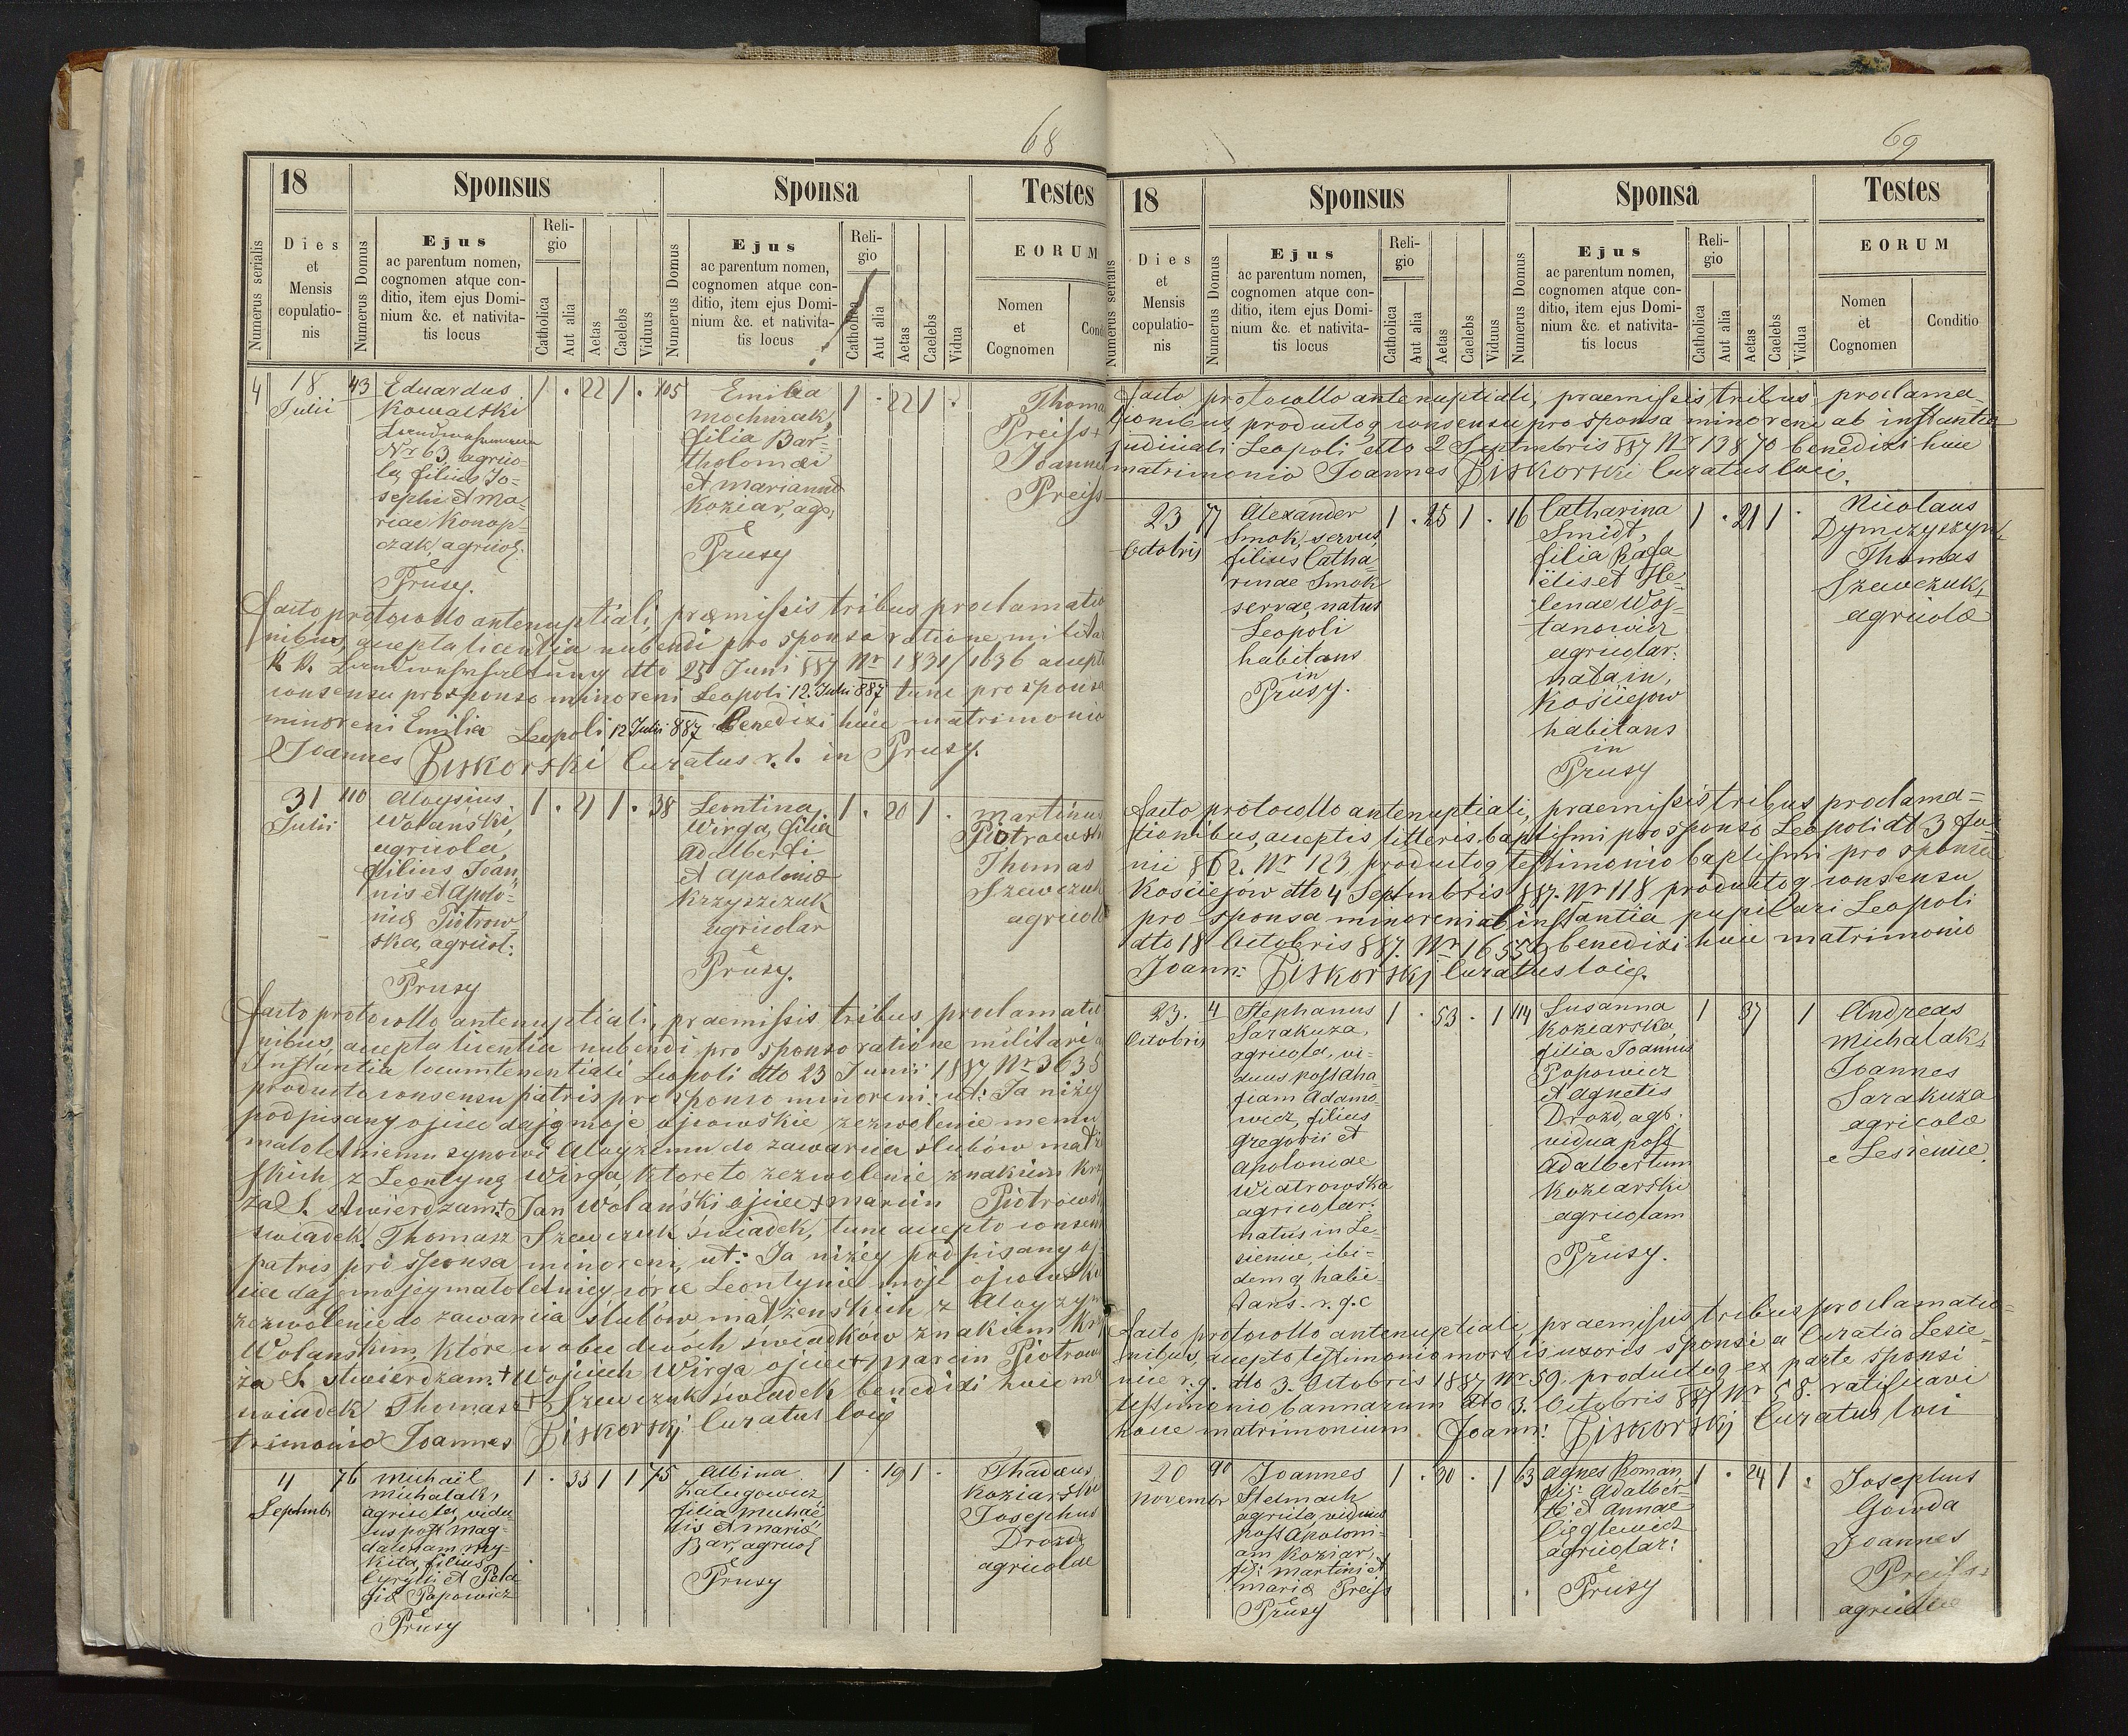 68
18
Sponsus
Sponsa
Testes
Numerus serialis
Dies
et
Mensis
copulatio-
nis
Numerus Domus
Ejus
ac parentum nomen,
cognomen atque con-
ditio, item ejus Domi-
nium &c. et nativita-
tis locus
Reli-
gio
Catholica
Aut alia
Aetas
Caelebs
Viduus
Numerus Domus
Ejus
ac parentum nomen,
cognomen atque con-
ditio, item ejus Domi-
nium &c. et nativita-
tis locus
Reli-
gio
Catholica
Aut alia
Aetas
Caelebs
Vidua
EORUM
Nomen
et
Cognomen
4
18
Julii
43
Eduardus
Kowalski
Nr 63 agrico-
la, filius Jo-
sephi et Ma-
riae Konop-
czak, agricol.
e
Prusy.
1 . 22 1 .
105
Emilia
Mochnak,
filia Bar-
tholomæi
et Mariannæ
Koziar, agr.
e
Prusy
1 . 22 1 .
Thoma
Preiss+
Joannes
Preiss
Facto protocollo antenuptiali, præmissis tribus proclamatio
nibus, accepta licentia nubendi pro sponso ratione milita
K. K. Landwehr dto 25 Juni 887 Nr 1831/1636 accepto
consensu pro sponso minoreni Leopoli 12. Julii 887 tunc pro sponsa
minoreni Emilia Leopoli, 12 Julii 887 benedixi huic matrimonio
Joannes Piskorski Curatus r. l. in Prusy.
31
Julii
110
Aloysius
Wolański,
agricola,
filius Joan-
nis et Apolo-
niæ Piotrow-
ska, agricol.
e
Prusy
1 . 21 1 .
38
Leontina
Wirga, filia
Adalberti
et Apoloniæ
Krzyszczuk
agricolar
e
Prusy.
1 . 20 1 .
Martinus
Piotrowsk
Thomas
Szewczuk
agricol
Facto protocollo antenuptiali, praemissis tribus proclamatio
nibus, accepta licentia nubendi pro sponso ratione militari a
Instantia locumtenentiali Leopoli dto 23 Junii 1887 Nr 3635
producto consensu patris pro sponso minoreni: ut: Ja niżej
podpisany ojciec daję moje ojcowskie zezwolenie memu
małoletniemu synowi Aloyzemu do zawarcia ślubów małże
skich z Leontyną Wirga, które to zezwolenie znakiem krzy
ża S. stwierdzam + Jan Wolański ojciec + Marcin Piotrowsk
świadek Thomasz Szewczuk świadek, tunc accepto consens
patris pro sponsa minoreni, ut: Ja niżey podpisany oj-
ciec daję mojej małoletniey córce Leontynie moje ojcowskie
zezwolenie do zawarcia ślubów małżeńskich z Aloyzym
Wolanskim, które w obec dwóch świadków znakiem krzy
ża S. stwierdzam. + Wojciech Wirga ojciec + Marcin Piotrow
świadek Thomasz + Szewczuk świadek benedixi huic ma
trimonio Joannes Piskorskj Curatus loci
4
Septembr
76
Michaël
Michalak,
agricola, vidu
us post Mag-
dalenam My-
kita, filius
Cyrylli et Pela-
giæ Popowicz
e
Prusy
1 . 33 1 1
75
Albina
filia Michaë
lis et Mariæ
Bar, agricol
e
Prusy
1 . 19 1 .
Thadæus
Koziarski
Josephus
Drozd
agricolae
69
18
Sponsus
Sponsa
Testes
Numerus serialis
Dies
et
Mensis
copulatio-
nis
Numerus Domus
Ejus
ac parentum nomen,
cognomen atque con-
ditio, item ejus Domi-
nium &c. et nativita-
tis locus
Reli-
gio
Catholica
Aut alia
Aetas
Caelebs
Viduus
Numerus Domus
Ejus
ac parentum nomen,
cognomen atque con-
ditio, item ejus Domi-
nium &c. et nativita-
tis locus
Reli-
gio
Catholica
Aut alia
Aetas
Caelebs
Vidua
EORUM
Nomen
et
Cognomen
Conditio
Facto protocollo antenuptiali, praemissis tribus proclama-
tionibus, productoq consensu pro sponsa minoreni ab instantia
judiciali Leopoli dto 2 Septembris 887 Nr 13870 benedixi huic
matrimonio Joannes Piskorski Curatus loci.
23
Octobris
77
Alexander
Smok, servus,
filius Catha-
rinae Smok
servae, natus
Leopoli
habitans
in
Prusy.
1 . 25 1 .
16
Catharina
Smidt,
filia Rafa
ëlis et He-
lenae Woj-
tanowicz
agricolar.
nata in
Kościejow
habitans
in
Prusy
1 . 21 1 .
Nicolaus
Dymczyszyn+
Thomas
Szewczuk+
agricolæ
Facto protocollo antenuptiali, praemissis tribus proclama=
tionibus, acceptis litteris baptismi pro sponso Leopoli dt 3 Ju-
nii 862. Nr 123, productoq testimonio baptismi pro sponsa
Kościejow dto 4 Septembris 887. Nr 118 productoq consensu
pro sponsa minoreni ab instantia pupilari Leopoli
dto 18 Octobris 887. Nr 16552 benedixi huic matrimonio
Joann: Piskorskj Curatus loci.
23.
Octobris
4
Stephanus
Sarakuza,
agricola, vi-
duus post Aga-
fiam Adamo-
wicz, filius
Gregorii et
Apoloniae
Wiatrowska
agricolar:
natus in Le-
sienice, ibi-
demq habi-
tans. r. g. c
1 . 53 . 1
114
Susanna
Koziarska,
filia Joannis
Popowicz
et Agnetis
Drozd, agr.
vidua post
Adalbertum
Koziarski
agricolam
e
Prusy.
1 37 1
Andreas
Michalak+
Joannes
Sarakuza
agricolæ
e Lesienice
Facto protocollo antenuptiali, praemissis tribus proclamatio=
nibus, accepto testimonio mortis uxoris sponsi a Curatia Lesie-
nice r. g. dto 3. Octobris 1887 Nr 59. productoq ex parte sponsi
testimonio bannarum dto 3. Octobris 887 Nr 58. ratificavi
hocce matrimonium Joann: Piskorskj Curatus loci
20
Novembr
90
Joannes
Stelmach
agricola, viduus
post Apoloni-
am Koziar,
fil: Martini et
Mariæ Preiss
e
Prusy
1 . 30 . 1
63
Agnes Roman,
fil: Adalber-
ti et Annae
Cieglewicz
agricolar:
e
Prusy
1 . 24 1 .
Josephus
Gowda
Joannes
Preiss+
agricolae